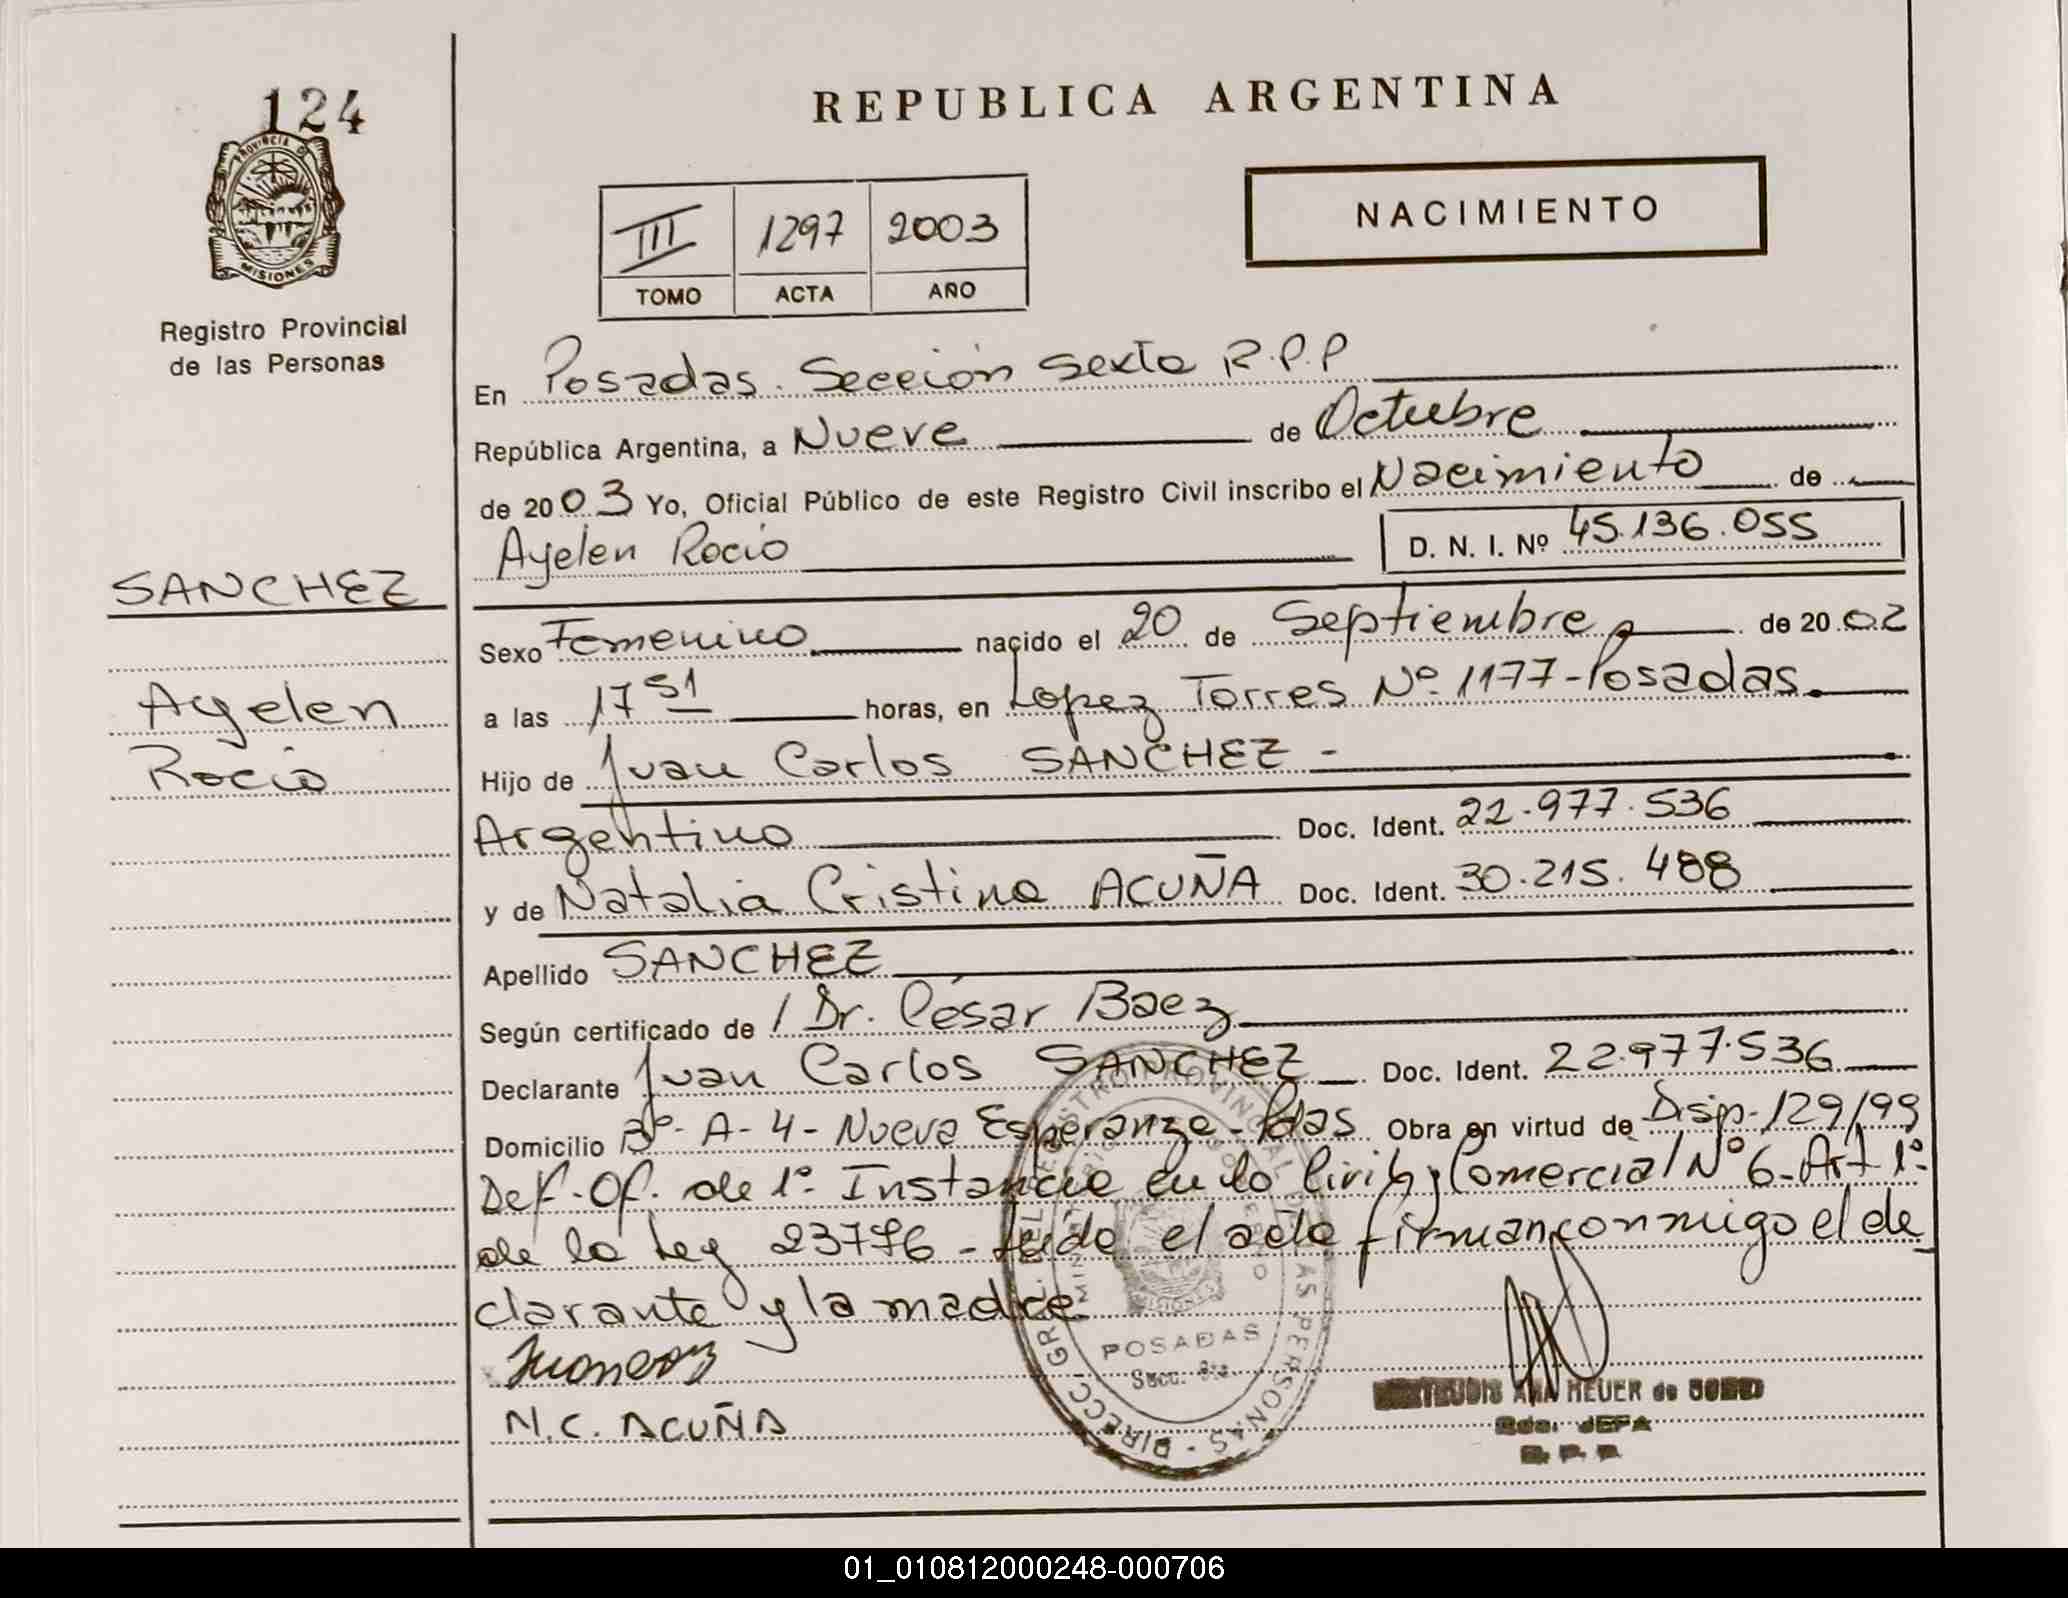 124
PROVINCIA DE
MISIONES
Registro Provincial
de las Personas
REPUBLICA ARGENTINA
NACIMIENTO
III 1297 2003
TOMO ACTA AÑO
En Posadas. Sección Sexta R.P.P
República Argentina, a Nueve de Octubre
de 2003 Yo, Oficial Público de este Registro Civil inscribo el Nacimiento de
Ayelen Rocio D. N. I. Nº 45.136.055
SANCHEZ
Ayelen
Rocio
Sexo Femenino nacido el 20 de Septiembre de 2002
a las 17 51 horas, en Lopez Torres Nº 1177-Posadas.
Hijo de Juan Carlos SANCHEZ -
Argentino Doc. Ident. 22.977.536
y de Natalia Cristina ACUÑA Doc. Ident. 30.215.488
Apellido SANCHEZ
Según certificado de / Dr. César Baez
Declarante Juan Carlos SANCHEZ Doc. Ident. 22.977.536
Domicilio Bº- A-4- Nueva Esperanza - Pdas Obra en virtud de Disp. 129/99
Def. Of. de 1º Instancia en lo Civil y Comercial Nº 6 - Art 1º-
de la Ley 23776 - Leida el acta firman conmigo el de
clarante y la madre
N.C. ACUÑA
DIRECC. GRAL. DEL REGISTRO PROVINCIAL DE LAS PERSONAS
POSADAS
Secc.
ANA HEUER de
JEFA
R. P. P.
01_010812000248-000706